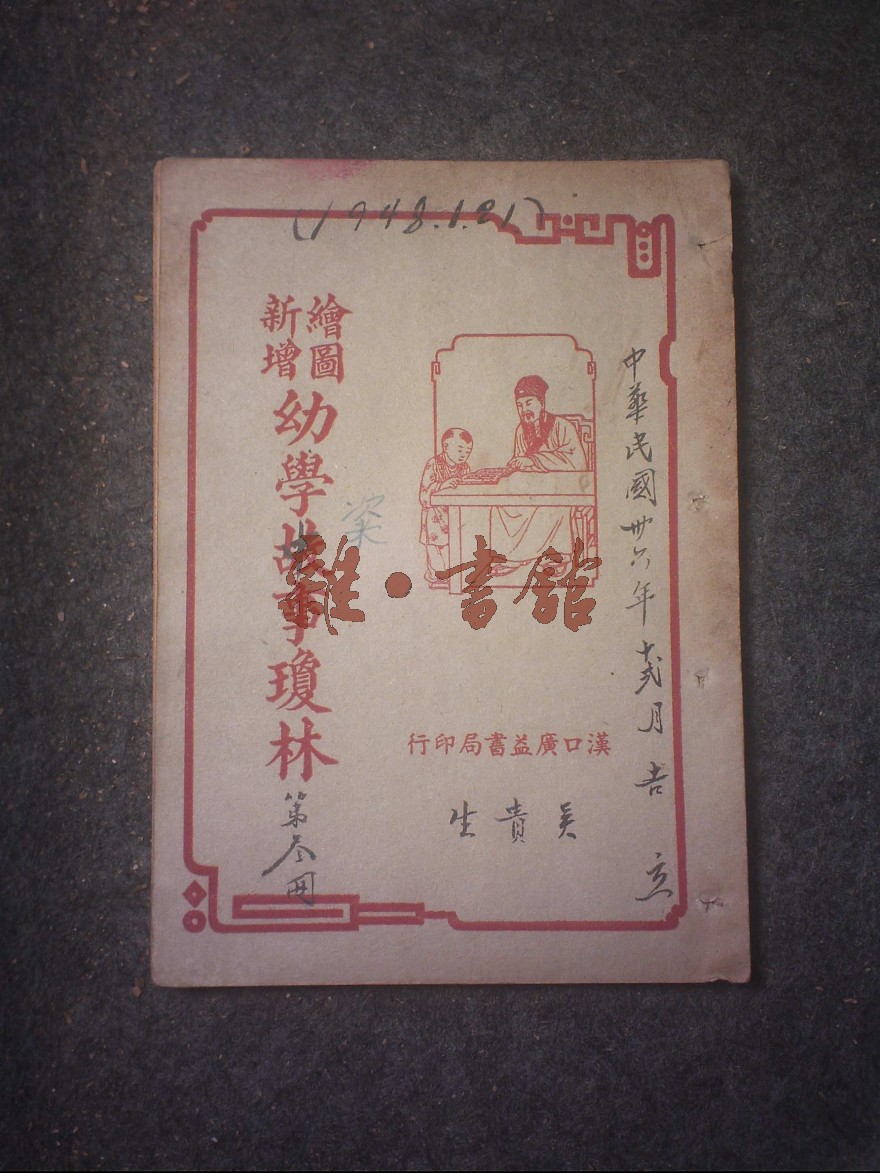 (1948.1.21)
中華民國卅六年十弍月吉立
繪圖
新增
幼學故事瓊林
第叁冊
漢口廣益書局印行
吴貴生
雜·書館